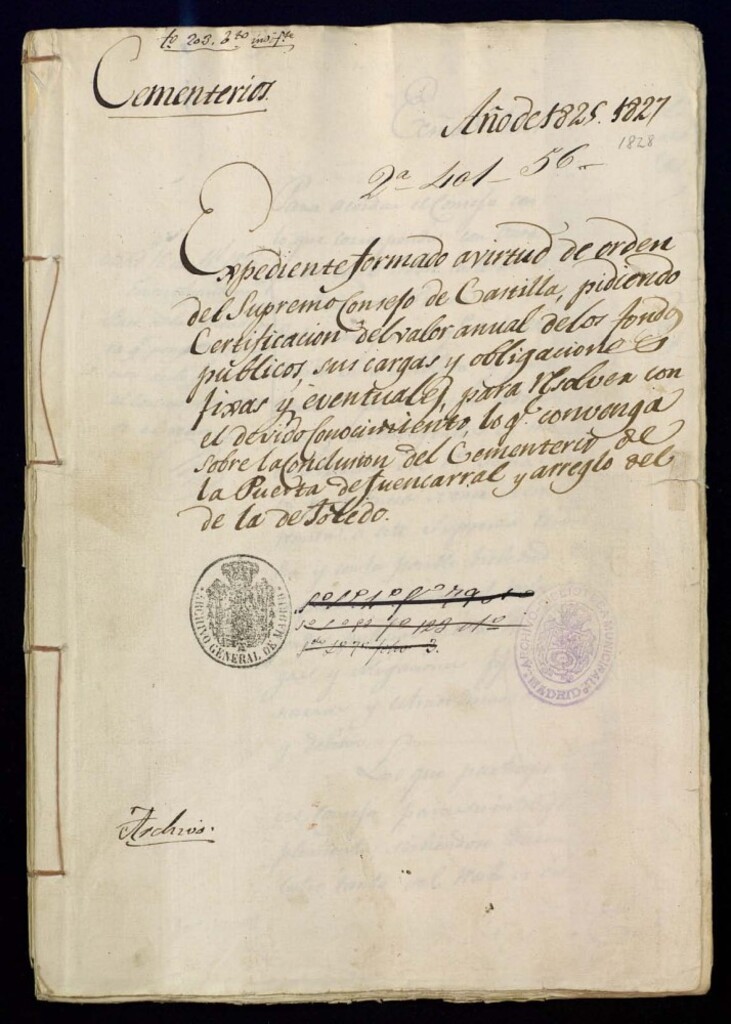 fº 203. 
Cementerios.
Año de 1825. 1827
1828
2ª 401 - 56 -
Expediente formado a virtud de orden
del Supremo Consejo de Castilla, pidiendo
Certificacion del valor anual de los fondos
públicos, sus cargas y obligaciones
fixas y eventuales, para resolver con
el devido conocimiento, lo qᵉ convenga
sobre la Conclusion del Cementerio de
la Puerta de Fuencarral y arreglo del
de la de Toledo.
ARCHIVO GENERAL DE MADRID
ARCHIVO Y BIBLIOTECA MUNICIPAL MADRID
Archivo.